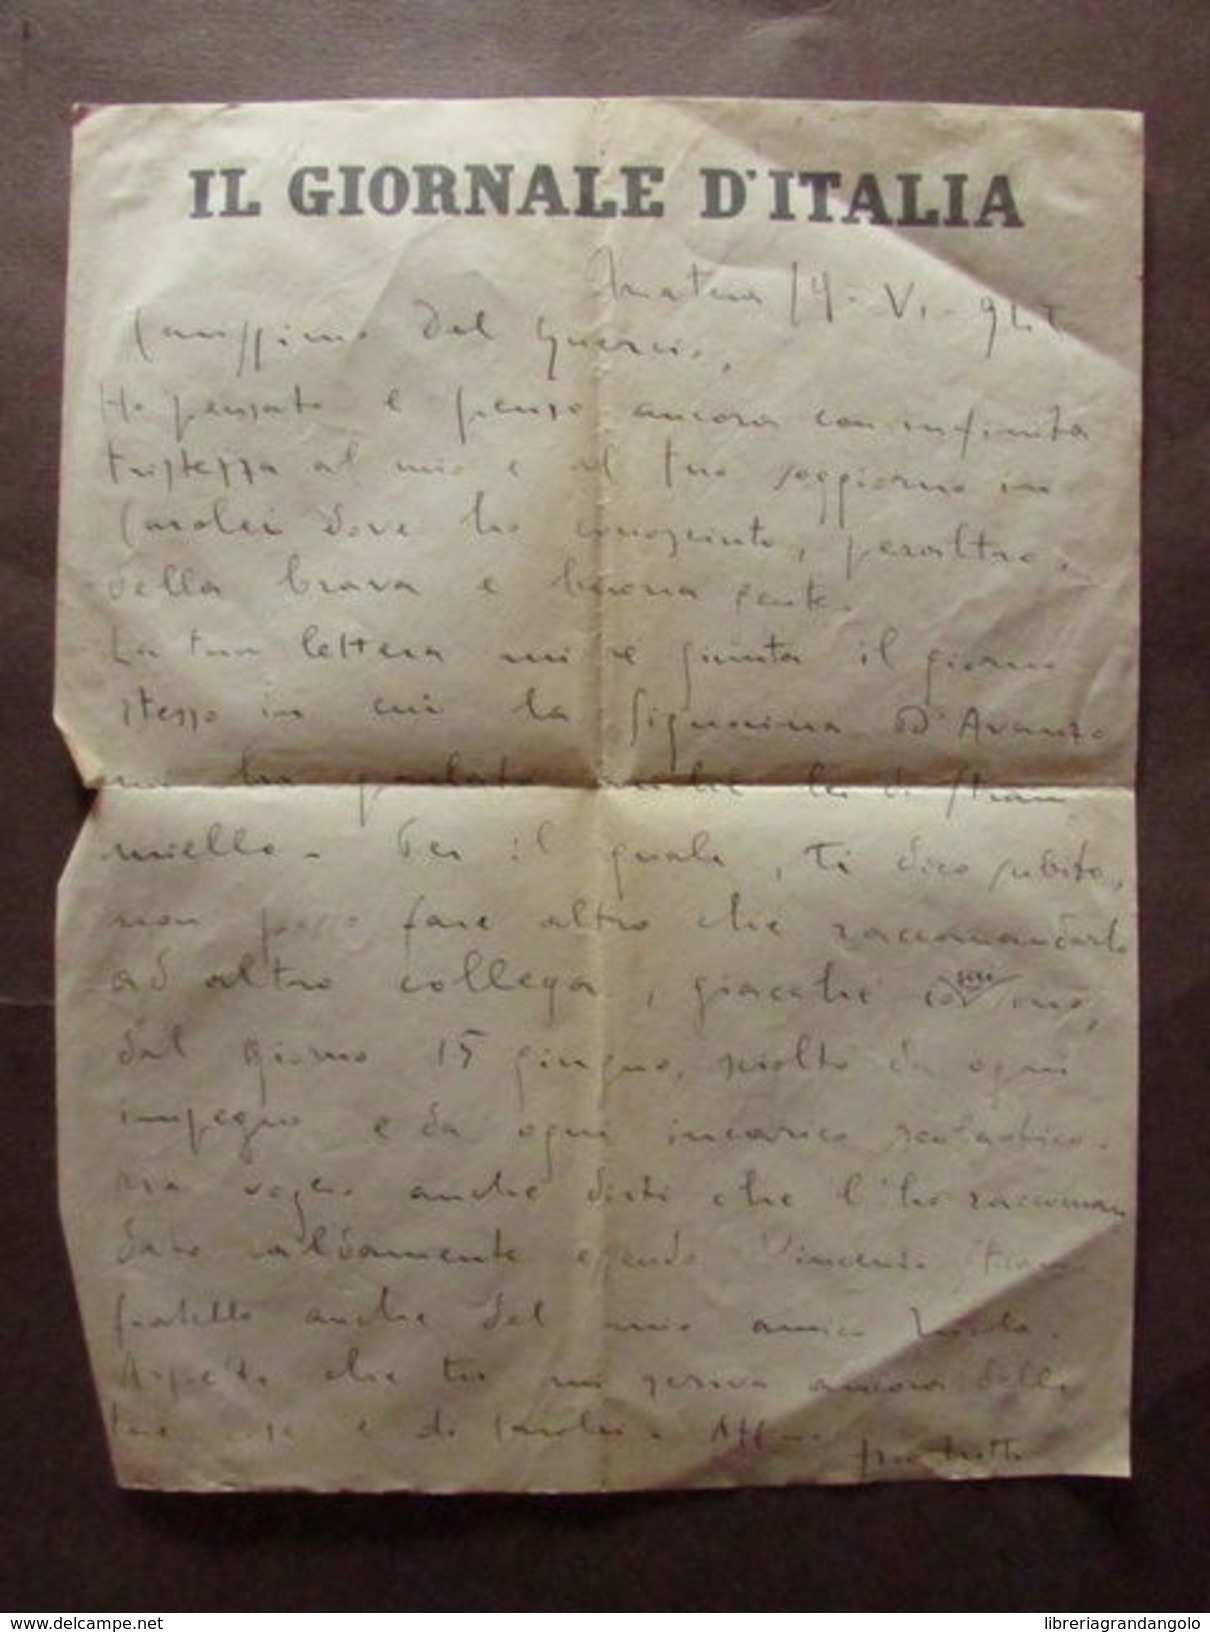 IL GIORNALE D'ITALIA
Matera 14-VI-942
Carissimo Del Guercio,
Ho pensato e penso ancora con infinita
tristezza al mio e al tuo soggiorno in
Carolei dove ho conosciuto, peraltro,
della brava e buona gente.
La tua lettera mi è giunta il giorno
stesso in cui la Signorina D'Avanzo
mi ha parlato anche lei di Stram
miello. Per il quale, ti dico subito,
non posso fare altro che raccomandarlo
ad altro collega, giacché io sono,
dal giorno 15 giugno, sciolto da ogni
impegno e da ogni incarico scolastico.
Ma voglio anche dirti che l'ho racoman
dato caldamente essendo Vincenzo
fratello anche del mio amico Nicola.
Aspetto che tu mi scriva ancora delle
tue e di Carolei. Aff.mo